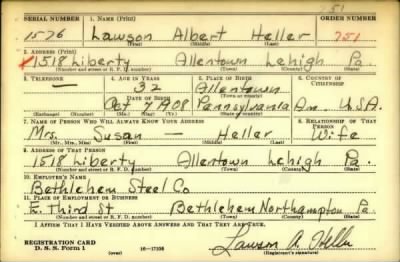 751
SERIAL NUMBER 1. NAME (Print) ORDER NUMBER
1576 Lawson Albert Heller 751
(First) (Middle) (Last)
2. ADDRESS (Print)
1518 Liberty Allentown Lehigh Pa.
(Number and street or R. F. D. number) (Town) (County) (State)
3. TELEPHONE 4. AGE IN YEARS 5. PLACE OF BIRTH 6. COUNTRY OF CITIZENSHIP
— 32 Allentown
DATE OF BIRTH (Town or county)
Oct 7 1908 Pennsylvania Am. U.S.A.
(Mo.) (Day) (Yr.) (State or country)
7. NAME OF PERSON WHO WILL ALWAYS KNOW YOUR ADDRESS 8. RELATIONSHIP OF THAT PERSON
Mrs. Susan — Heller Wife
(Mr., Mrs., Miss) (First) (Middle) (Last)
9. ADDRESS OF THAT PERSON
1518 Liberty Allentown Lehigh Pa.
(Number and street or R. F. D. number) (Town) (County) (State)
10. EMPLOYER'S NAME
Bethlehem Steel Co
11. PLACE OF EMPLOYMENT OR BUSINESS
E. Third St Bethlehem Northampton Pa.
(Number and street or R. F. D. number) (Town) (County) (State)
I AFFIRM THAT I HAVE VERIFIED ABOVE ANSWERS AND THAT THEY ARE TRUE.
REGISTRATION CARD
D. S. S. Form 1 (over) 16—17105 Lawson A. Heller
(Registrant's signature)